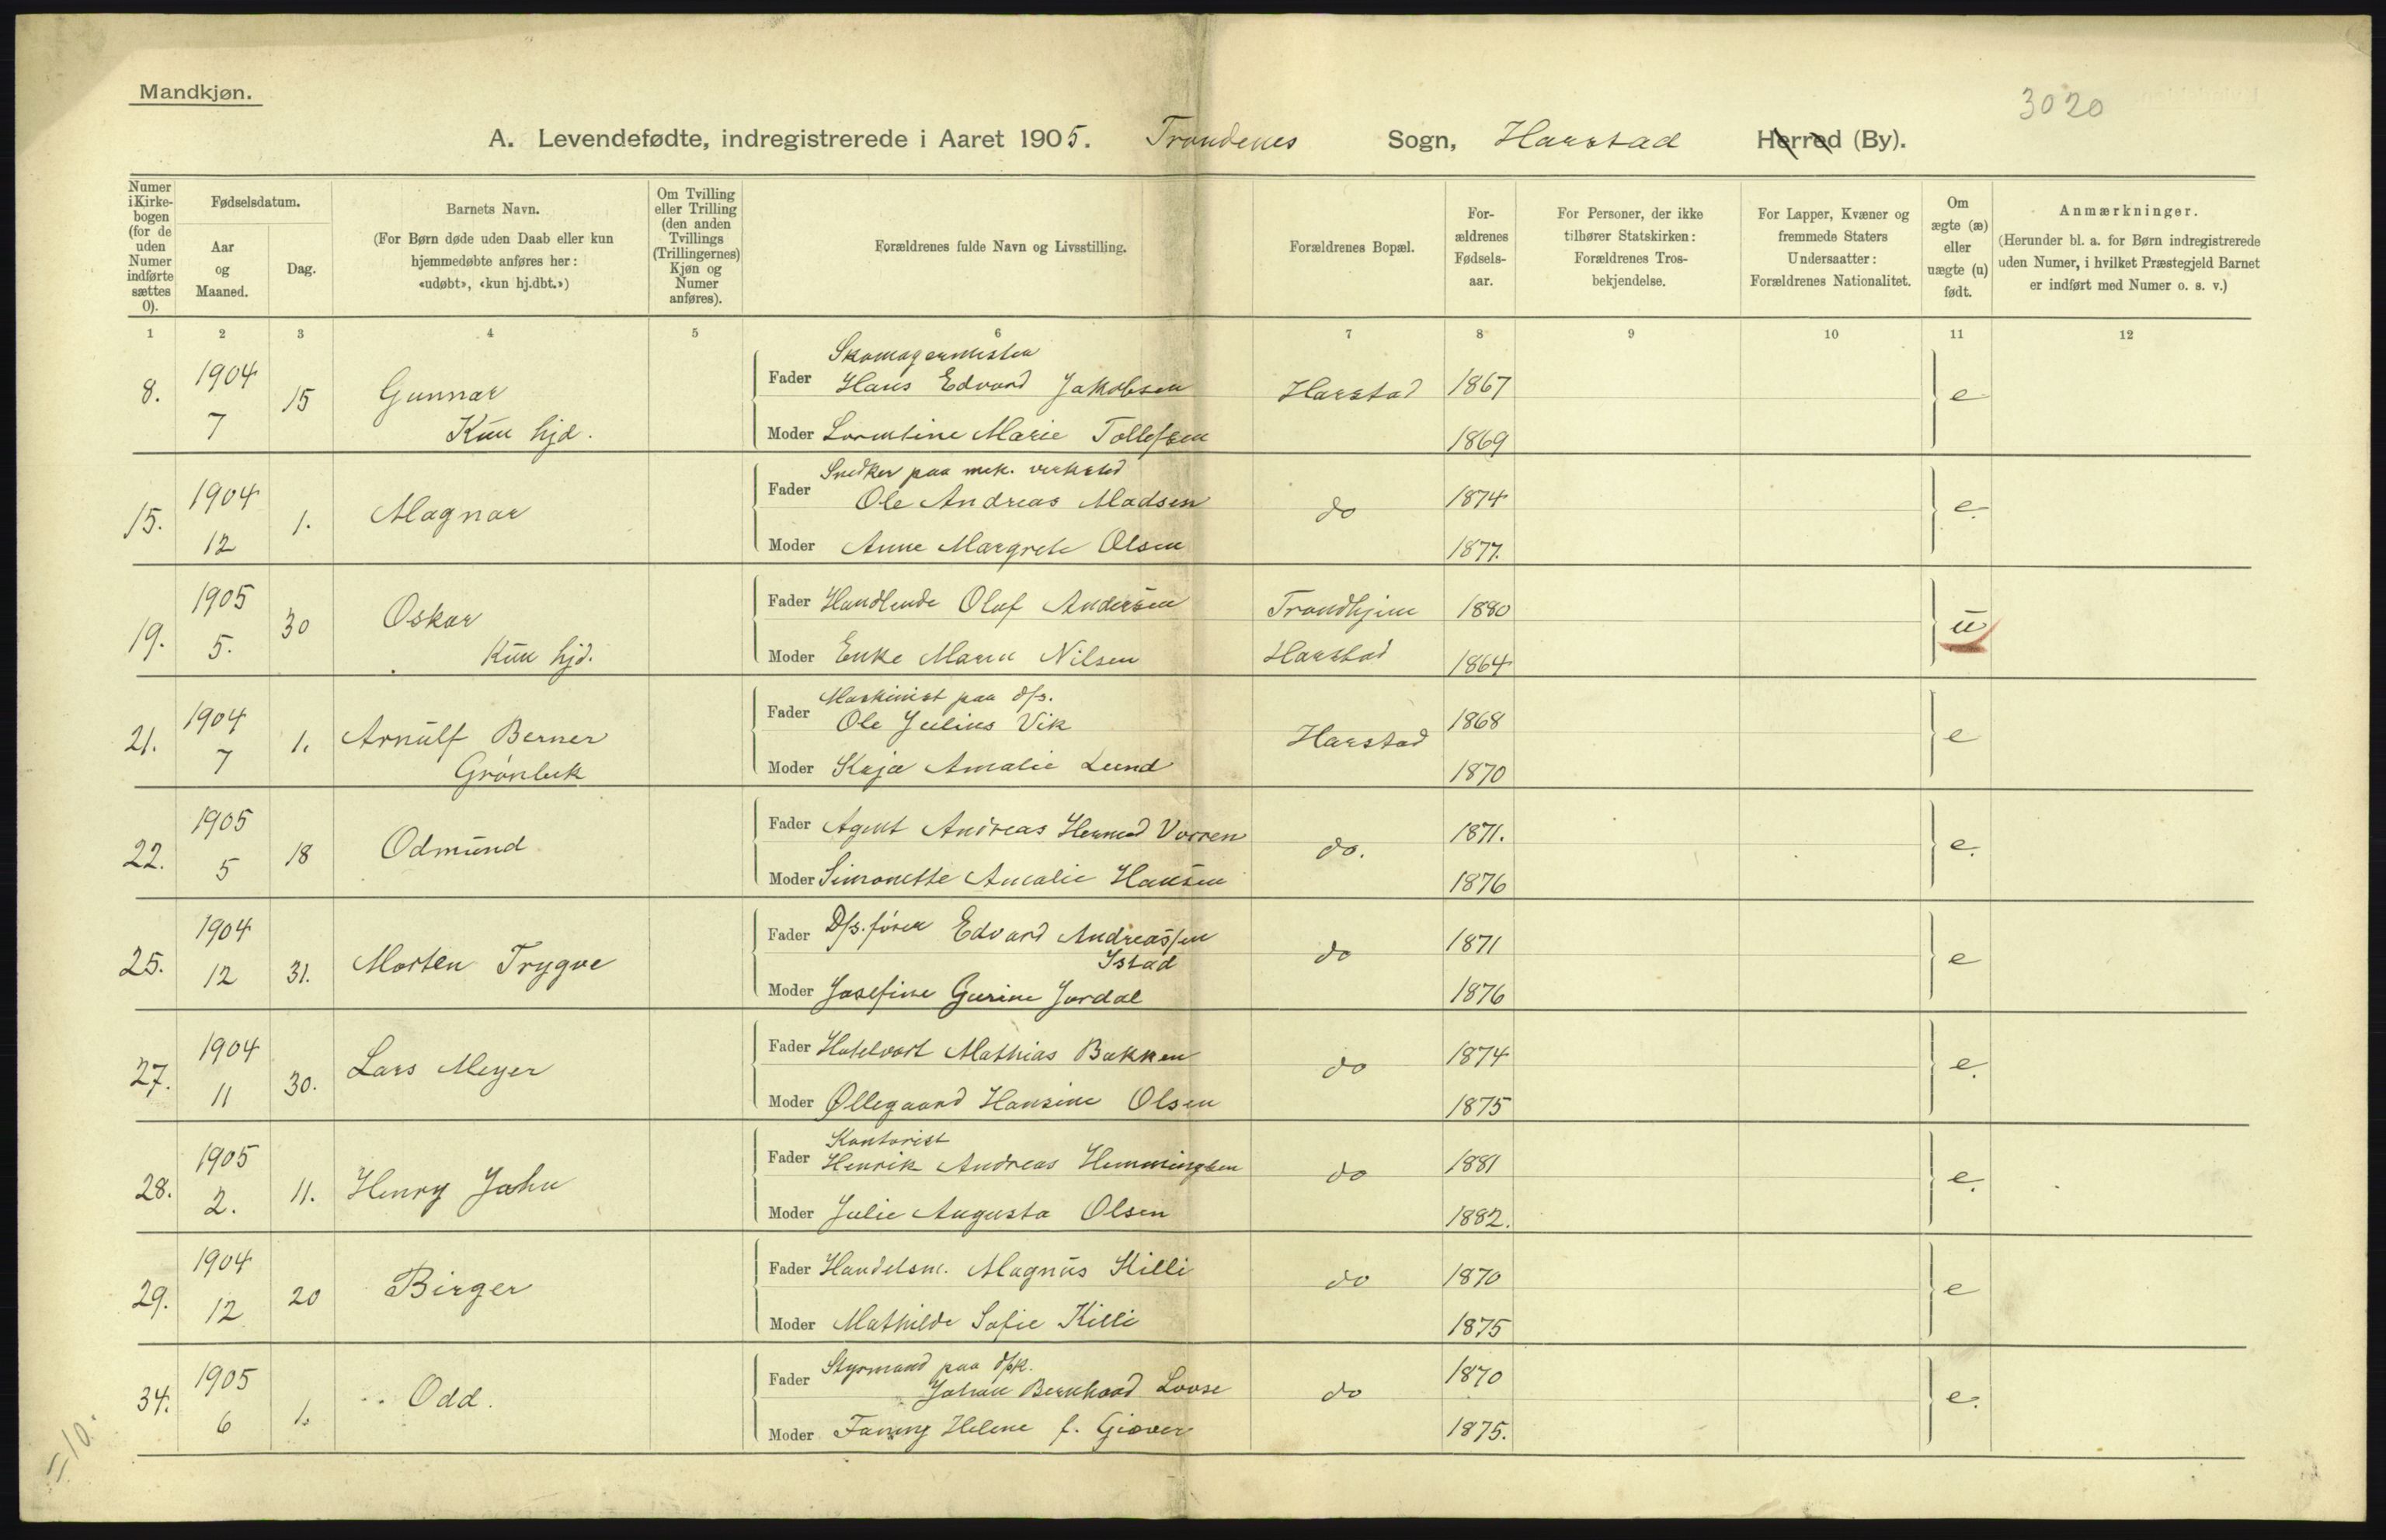 Mandkjøn.
3020
A. Levendefødte, indregistrerede i Aaret 1905. Trondenes Sogn, Harstad Herred (By).
Numer i Kirkebogen (for de uden Numer indførte sættes 0).
Fødselsdatum.
Aar og Maaned.
Dag.
Barnets Navn.
(For Børn døde uden Daab eller kun hjemmedøbte anføres her: «udøbt», «kun hj.dbt.»)
Om Tvilling eller Trilling (den anden Tvillings (Trillingernes) Kjøn og Numer anføres).
Forældrenes fulde Navn og Livsstilling.
Forældrenes Bopæl.
For-ældrenes Fødsels-aar.
For Personer, der ikke tilhører Statskirken: Forældrenes Tros-bekjendelse.
For Lapper, Kvæner og fremmede Staters Undersaatter: Forældrenes Nationalitet.
Om ægte (æ) eller uægte (u) født.
Anmærkninger.
(Herunder bl. a. for Børn indregistrerede uden Numer, i hvilket Præstegjeld Barnet er indført med Numer o. s. v.)
1 2 3 4 5 6 7 8 9 10 11 12
8. 1904 7 15 Gunnar Kun hjd.
Fader Skomagermester Hans Edvard Jakobsen Harstad 1867 e
Moder Lorentine Marie Tollefsen 1869
15. 1904 12 1. Magnar
Fader Snedker paa mek. verksted Ole Andreas Madsen do 1874 e.
Moder Anne Margrete Olsen 1877.
19. 1905 5. 30 Oskar Kun hjd.
Fader Handlende Olaf Andersen Trondhjem 1880 u
Moder Enke Maren Nilsen Harstad 1864
21. 1904 7 1. Arnulf Berner Grønbek
Fader Maskinist paa d/s. Ole Julius Vik Harstad 1868 e
Moder Kaja Amalie Lund 1870
22. 1905 5 18 Odmund
Fader Agent Andreas Vorren do. 1871. e.
Moder Simonette Amalie Hansen 1876
25. 1904 12 31. Morten Trygve
Fader D/s. fører Edvard Andreassen Ystad do 1871 e
Moder Josefine Gurine Jordal 1876
27. 1904 11 30. Lars Meyer
Fader Hotelvært Mathias Bakken do 1874 e.
Moder Øllegaard Hansine Olsen 1875
28. 1905 2. 11. Henry John
Fader Kontorist Henrik Andreas Hemmingsen do 1881 e.
Moder Julie Augusta Olsen 1882.
29. 1904 12 20 Birger
Fader Handelsm. Magnus Killi do 1870 e
Moder Mathilde Sofie Killi 1875
34. 1905 6 1. Odd.
Fader Styrmand paa Johan Bernhard Loose do 1870 e.
Moder Fanny Helene f. Giæver 1875.